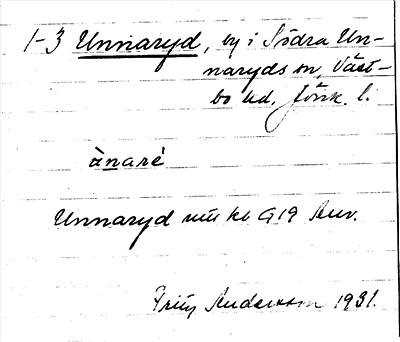 1-3 Unnaryd, by i Södra Un-
naryds sn, Väst-
bo hd, Jönk. l.
ànaré
Unnaryd G19 Anv.
Fritz Andersson 1931.